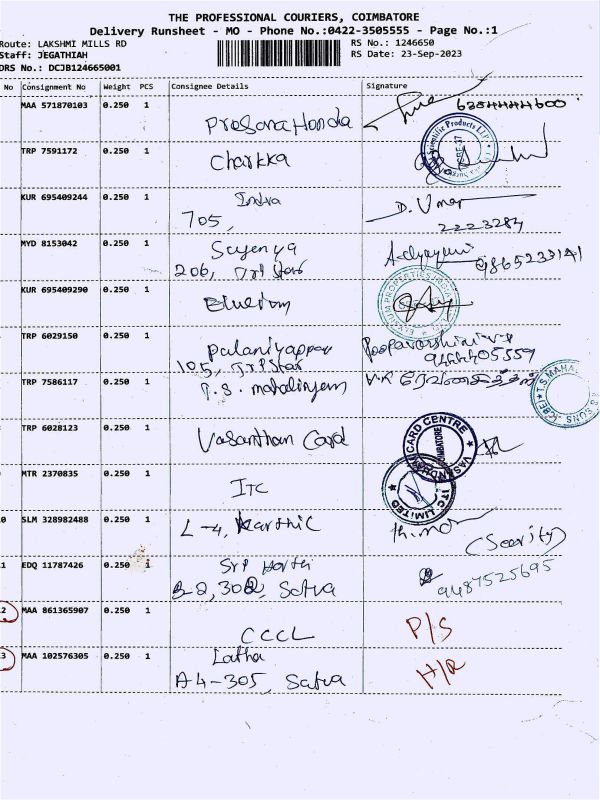 THE PROFESSIONAL COURIERS, COIMBATORE
Delivery Runsheet - MO - Phone No.:0422-3505555 - Page No.:1
Route: LAKSHMI MILLS RD
RS No.: 1246650
Staff: JEGATHIAH
RS Date: 23-Sep-2023
DRS No.: DCJB124665001
No Consignment No Weight PCS Consignee Details Signature
MAA 571870103 0.250 1 Prasana Honda
TRP 7591172 0.250 1 Charkka
Scientific Products LLP
KUR 695409244 0.250 1 Indra D. Umar
705, 2223284
MYD 8153042 0.250 1
206, Tri Star
KUR 695409290 0.250 1
PROPERTIES
TRP 6029150 0.250 1 Palaniyappan
105, Tri Star
TRP 7586117 0.250 1 T.S. mahalingam V.R
T.S.MAHA
& SONS
TRP 6028123 0.250 1 Vasantham Card
VASANDHAM CARD CENTRE
COIMBATORE
MTR 2370835 0.250 1 ITC
ITC LIMITED
SLM 328982488 0.250 1 L-4, Karthic
EDQ 11787426 0.250 1 Sri
B-2, 302, Satva 9487525695
12 MAA 861365907 0.250 1 CCCL P/S
13 MAA 102576305 0.250 1 Latha
A4-305, Satva